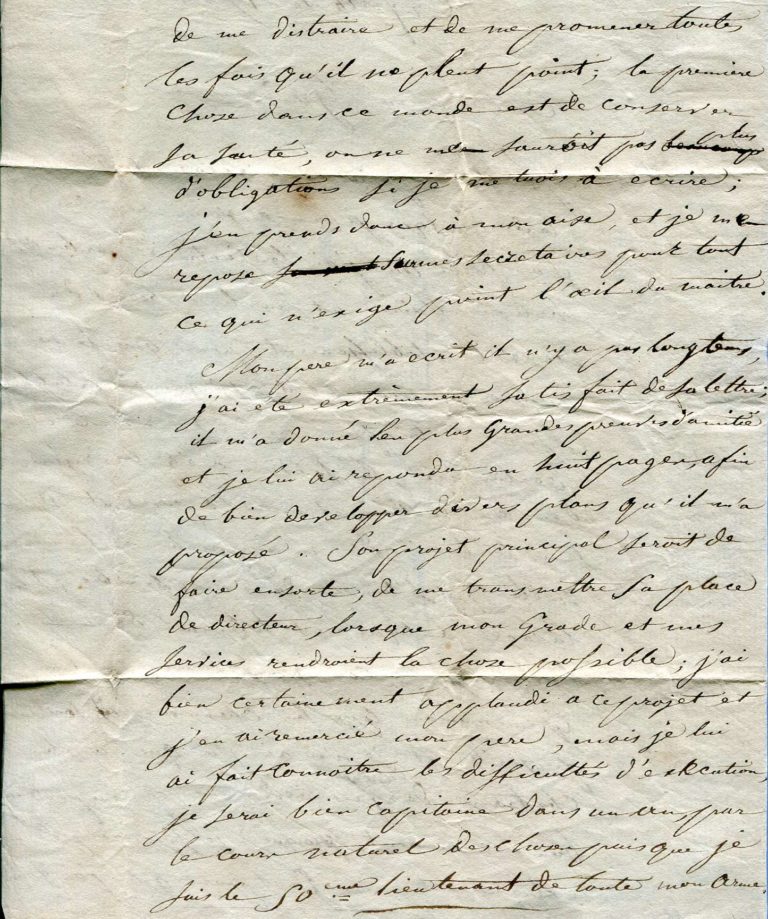 de me distraire et de me promener toutes
les fois qu'il ne pleut point; la premiere
chose dans ce monde est de conserver
sa santé, on ne me sauroit pas beaucoup plus
d'obligations si je me tuois à ecrire;
j'en prends donc à mon aise, et je me
repose sur mes secretaires pour tout
ce qui n'exige point l'œil du maitre.
Mon pere m'a ecrit il n'y a pas longtems,
j'ai été extrêmement satisfait de sa lettre;
il m'a donné les plus grandes preuves d'amitié
et je lui ai repondu en huit pages, afin
de bien developper divers plans qu'il m'a
proposé. Son projet principal seroit de
faire ensorte, de me transmettre sa place
de directeur, lorsque mon Grade et mes
services rendroient la chose possible; j'ai
bien certainement applaudi a ce projet et
j'en ai remercié mon pere, mais je lui
ai fait connoitre les difficultés d'exécution,
je serai bien capitaine dans un an, par
le cours naturel des choses puisque je
suis le 50me lieutenant de toute mon arme.